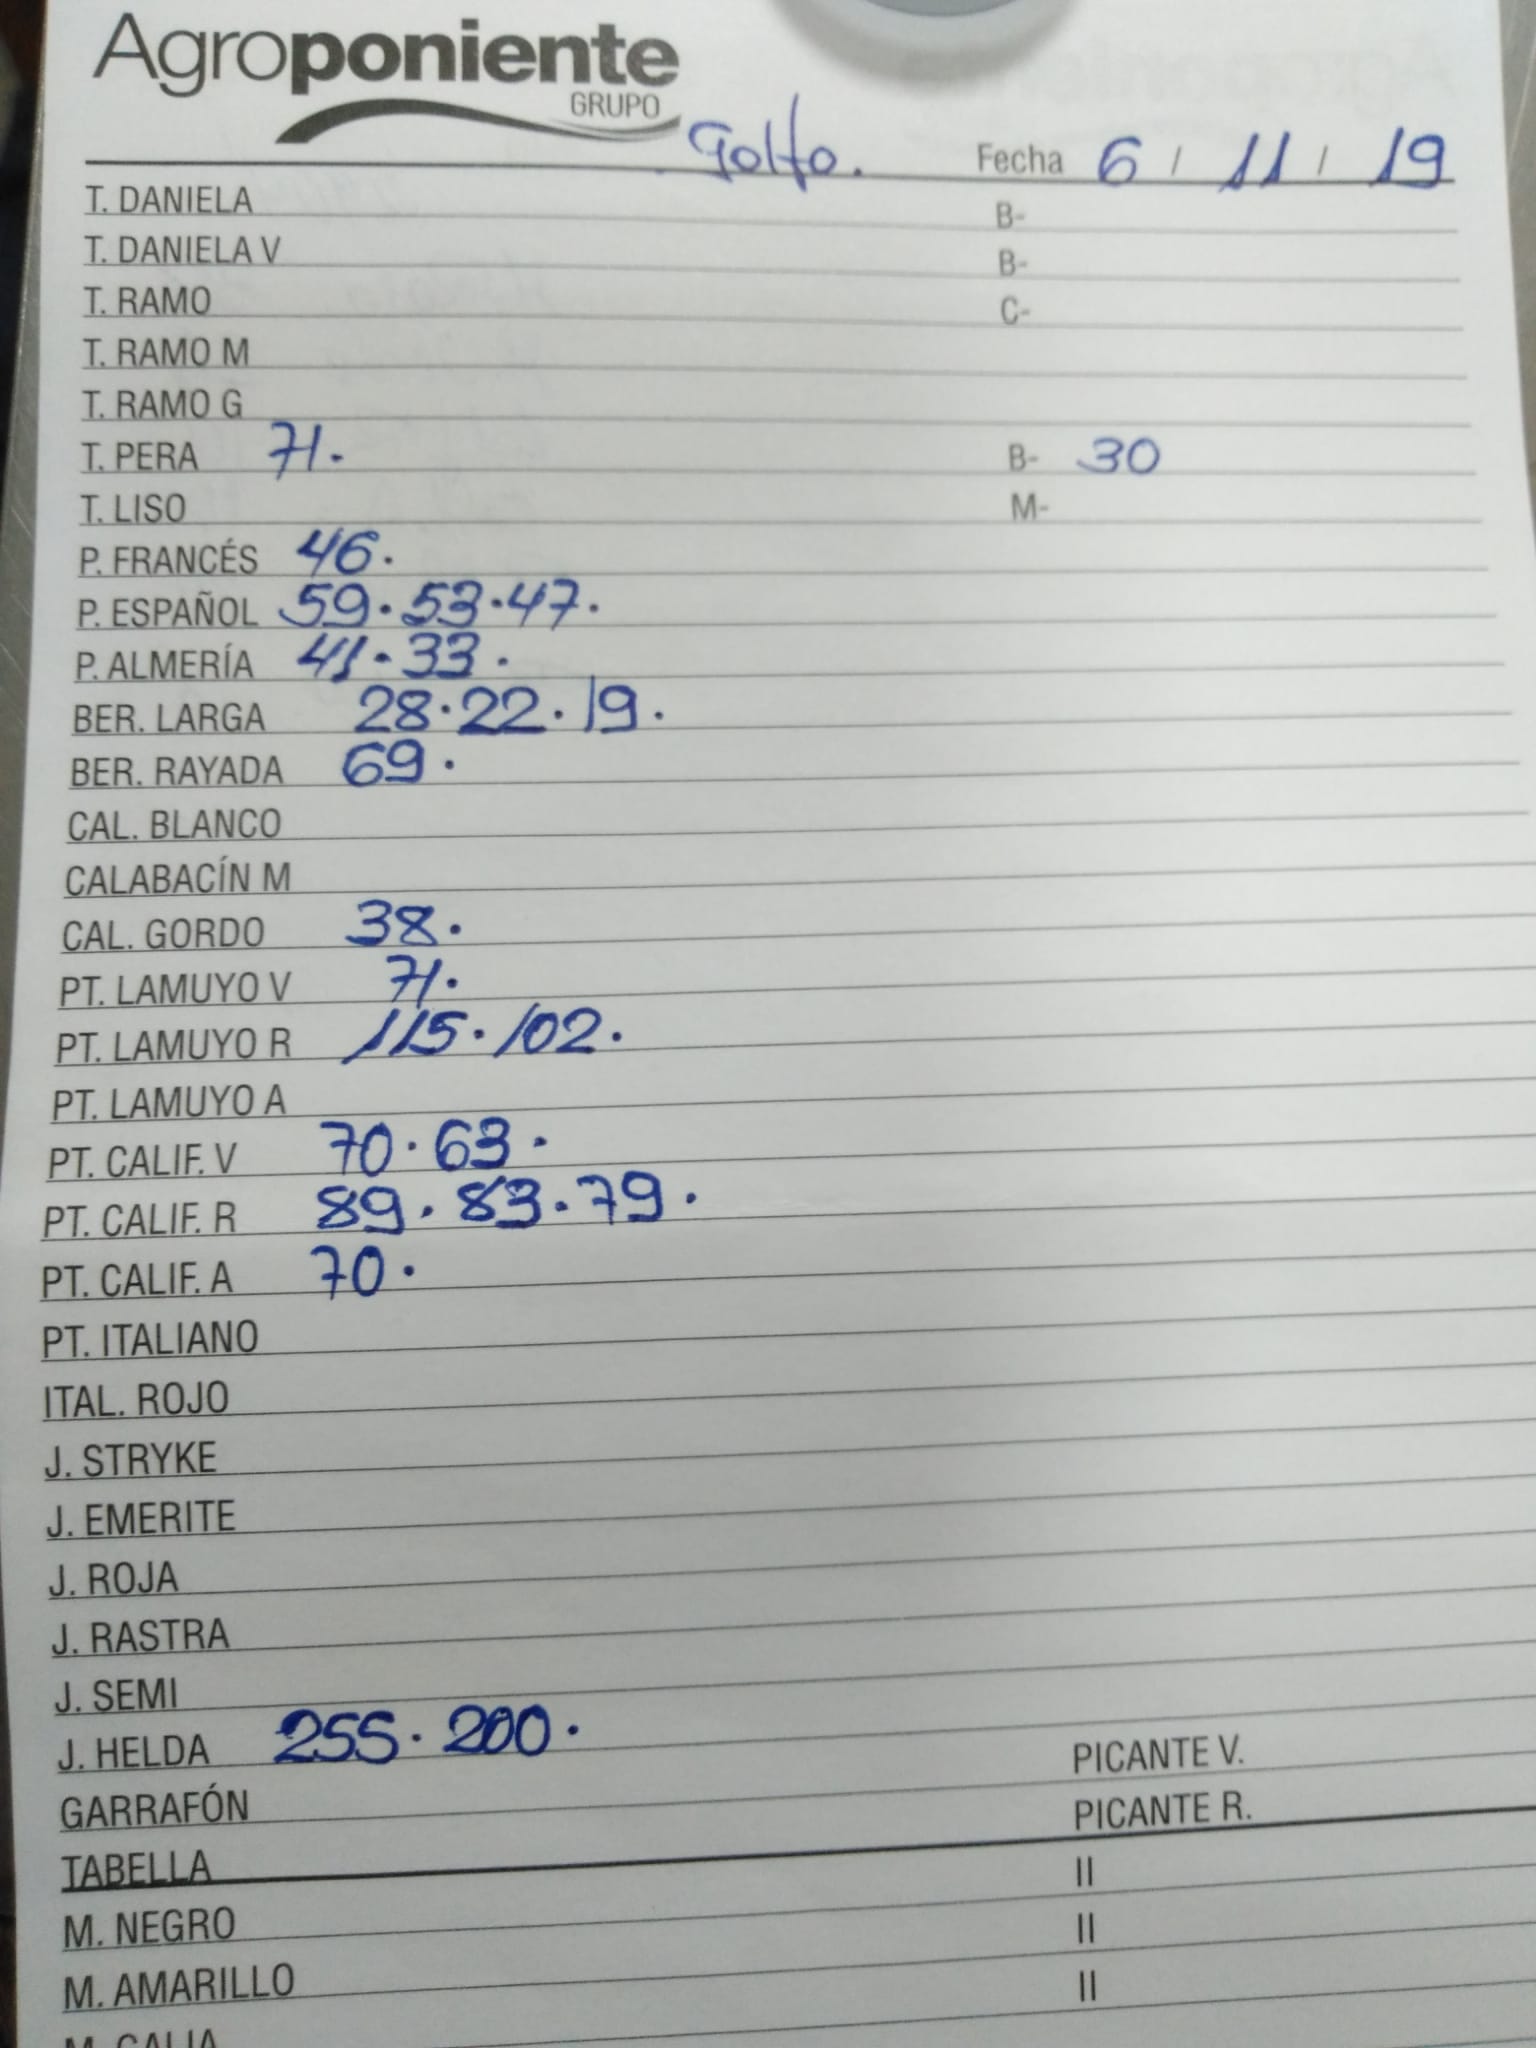 Agroponiente
GRUPO
Golfo. Fecha 6 / 11 / 19
T. DANIELA B-
T. DANIELA V B-
T. RAMO C-
T. RAMO M
T. RAMO G
T. PERA 71. B- 30
T. LISO M-
P. FRANCÉS 46.
P. ESPAÑOL 59.53.47.
P. ALMERÍA 41.33.
BER. LARGA 28.22.19.
BER. RAYADA 69.
CAL. BLANCO
CALABACÍN M
CAL. GORDO 38.
PT. LAMUYO V 71.
PT. LAMUYO R 115.102.
PT. LAMUYO A
PT. CALIF. V 70.63.
PT. CALIF. R 89.83.79.
PT. CALIF. A 70.
PT. ITALIANO
ITAL. ROJO
J. STRYKE
J. EMERITE
J. ROJA
J. RASTRA
J. SEMI
J. HELDA 255.200. PICANTE V.
GARRAFÓN PICANTE R.
TABELLA II
M. NEGRO II
M. AMARILLO II
M. GALIA